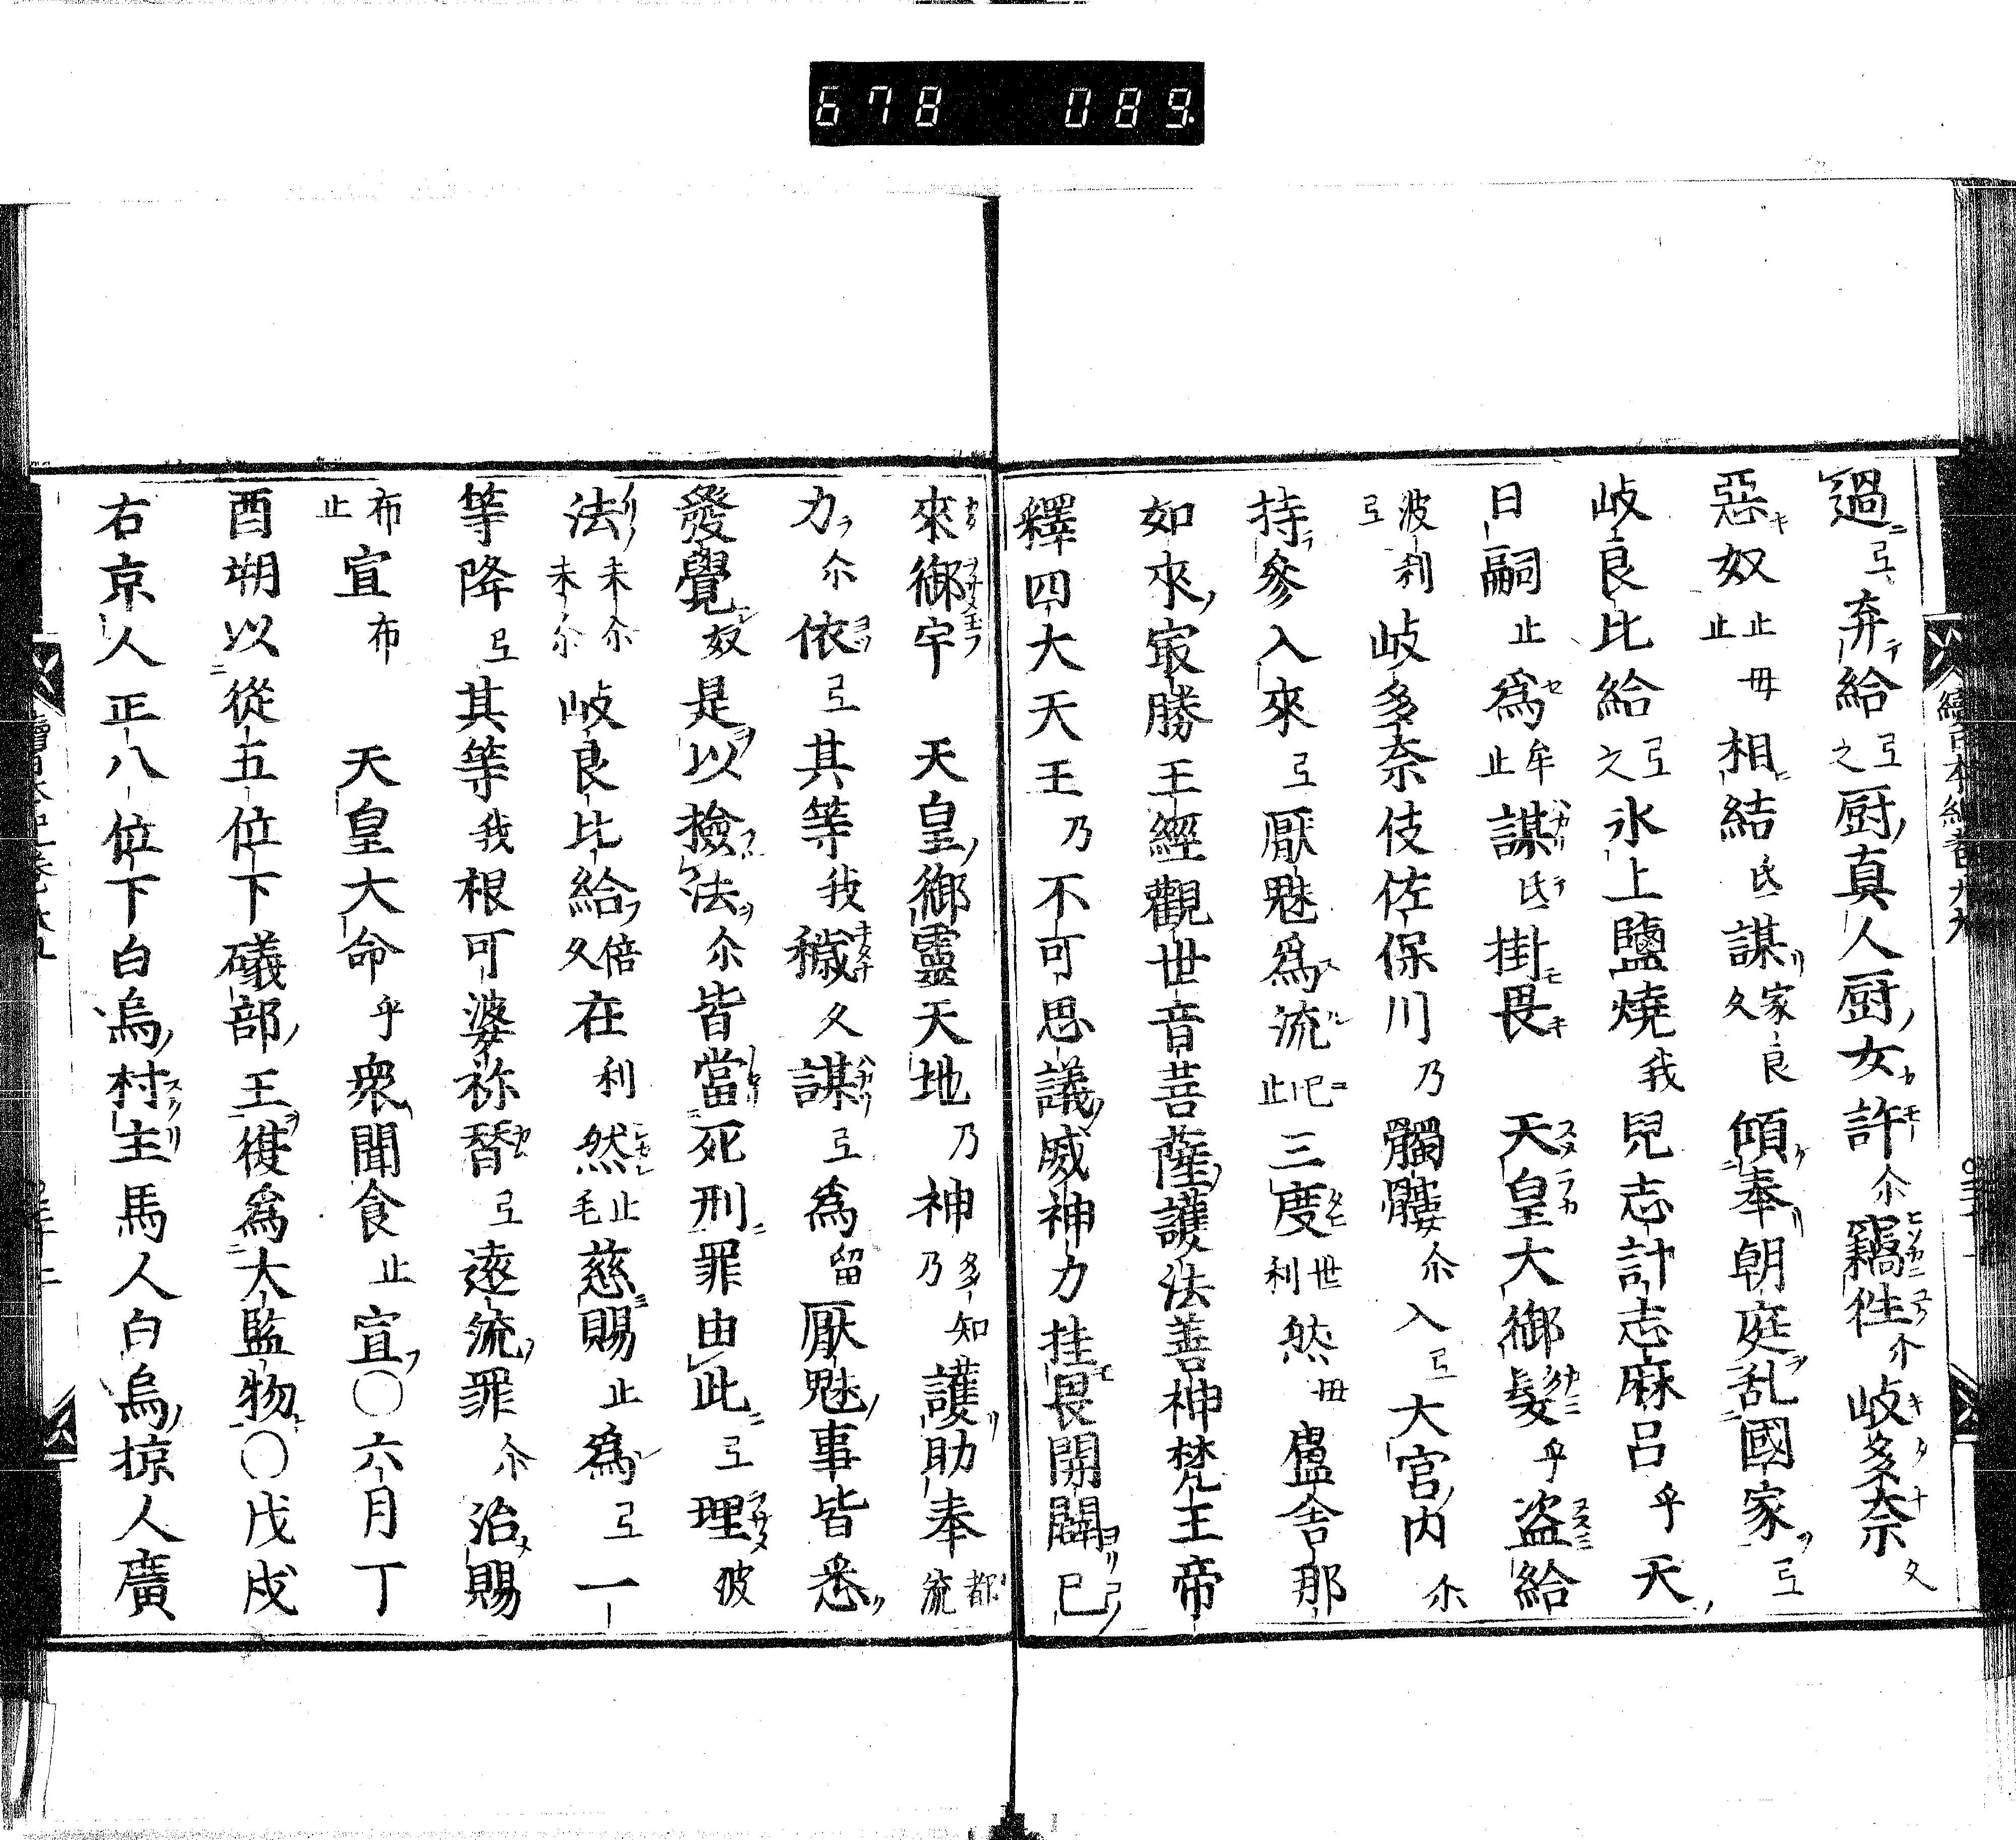 678 089
過弖弃給弖之厨真人厨女許尒竊徃尒岐多奈久
惡奴止止毋相結氐謀家良久傾奉朝庭乱國家弖
岐良比給弖之氷上鹽燒我兒志計志麻呂乎天
日嗣止爲牟止謀氐掛畏天皇大御髮乎盗給
波利弖岐多奈伎佐保川乃髑髏尒入弖大宮内尒
持參入來弖厭魅爲流己止三度世利然毋盧舍那
如來冣勝王經觀世音菩薩護法善神梵王帝
釋四大天王乃不可思議威神力挂畏開闢已
來御宇天皇御靈天地乃神多知乃護助奉都流
力尒依弖其等我穢久謀弖爲留厭魅事皆悉
發覺奴是以撿法尒皆當死刑罪由此弖理波
法末尒末尒岐良比給倍久在利然止毛慈賜止爲弖一
等降弖其等我根可婆祢替弖遠流罪尒治賜
布止宣布天皇大命乎衆聞食止宣〇六月丁
酉朔以從五位下礒部王復爲大監物〇戊戌
右京人正八位下白鳥村主馬人白鳥掠人廣